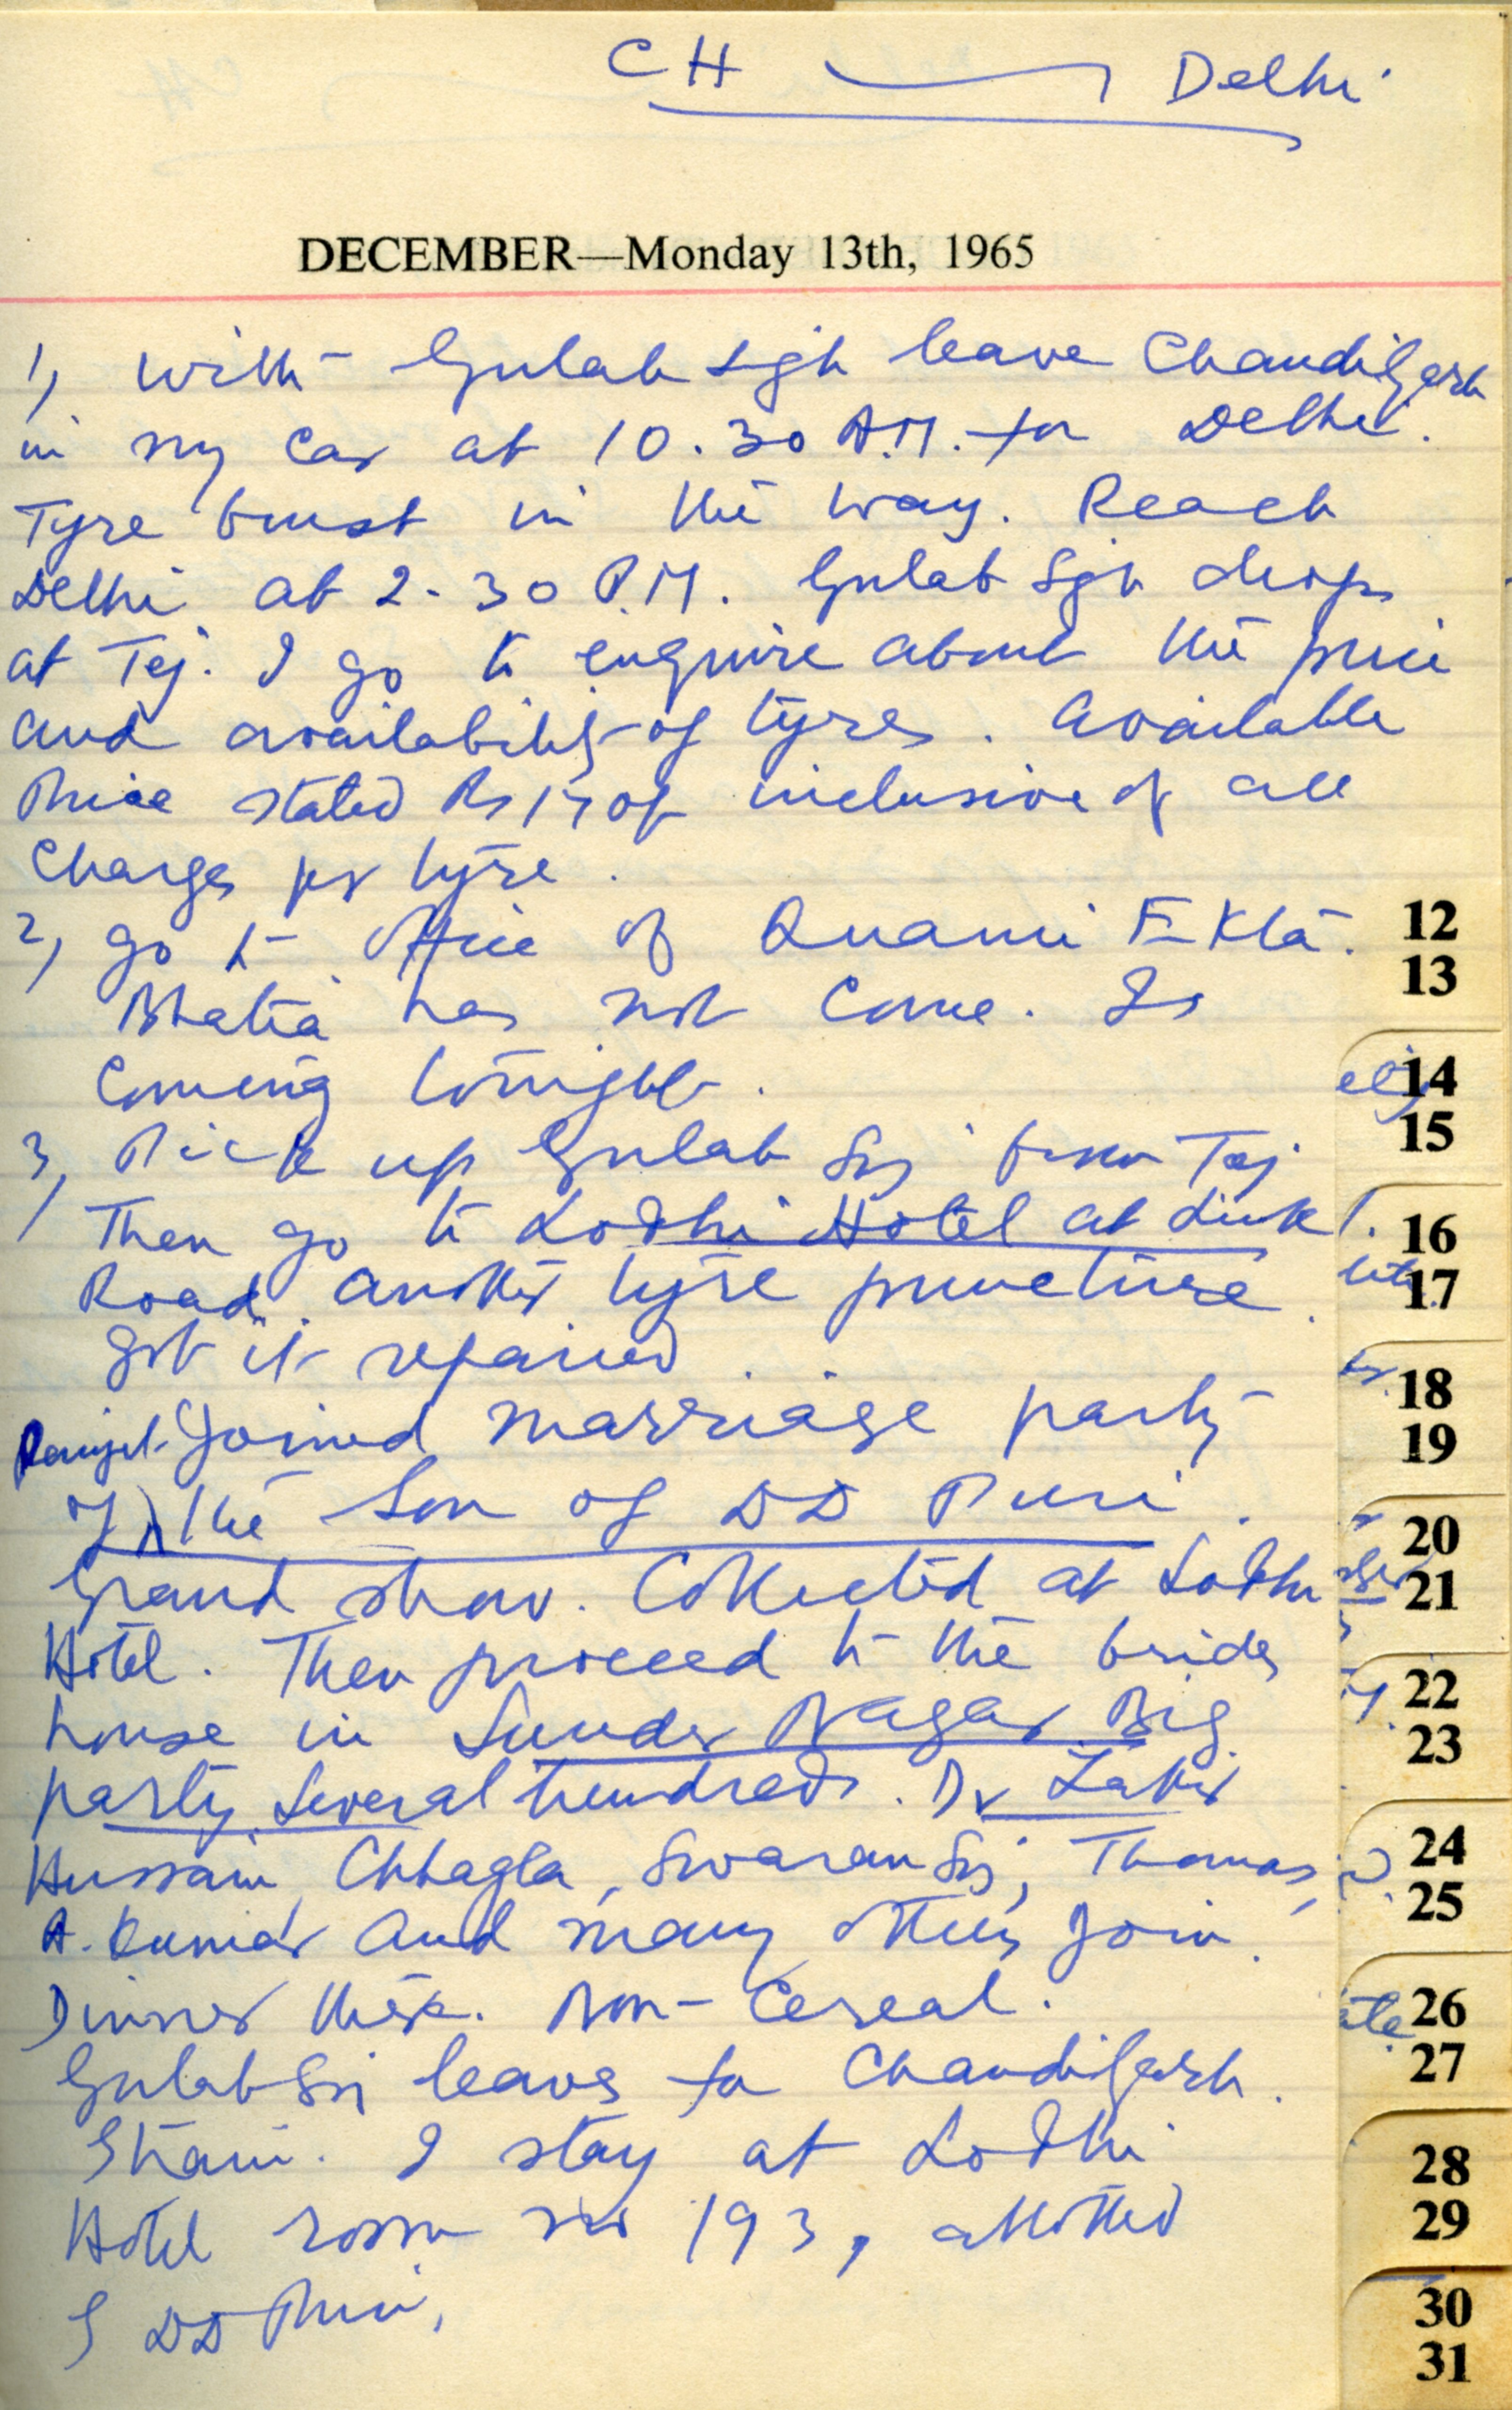 CH Delhi
DECEMBER—Monday 13th, 1965
1, With Gulab Sgh leave Chandigarh
in my car at 10.30 A.M. for Delhi.
Tyre burst in the way. Reach
Delhi at 2.30 P.M. Gulab Sgh drops
at Tej. I go to enquire about the price
and availability of tyres. Available
Price stated Rs inclusive of all
Charges per tyre.
2, go to office of Quami Ekta.
Bhatia has not come. Is
coming tonight.
3, Pick up Gulab Sgh from Tej
Then go to Lodhi Hotel at Link
Road. another tyre puncture.
got it repaired.
Ranjit Joined marriage party
of the Son of DD Puri.
Grand show. Collected at Lodhi
Hotel. Then proceed to the brides
house in Sunder Nagar. Big
party, several hundreds. Dr Zakir
Hussain, Chhagla, Swaran Sgh, Thomas,
A. Kumar and many others join.
Dinner there. Non-Cereal.
Gulab Sgh leaves for Chandigarh.
I stay at Lodhi
Hotel room no 193, allotted
DD Puri,
12
13
14
15
16
17
18
19
20
21
22
23
24
25
26
27
28
29
30
31